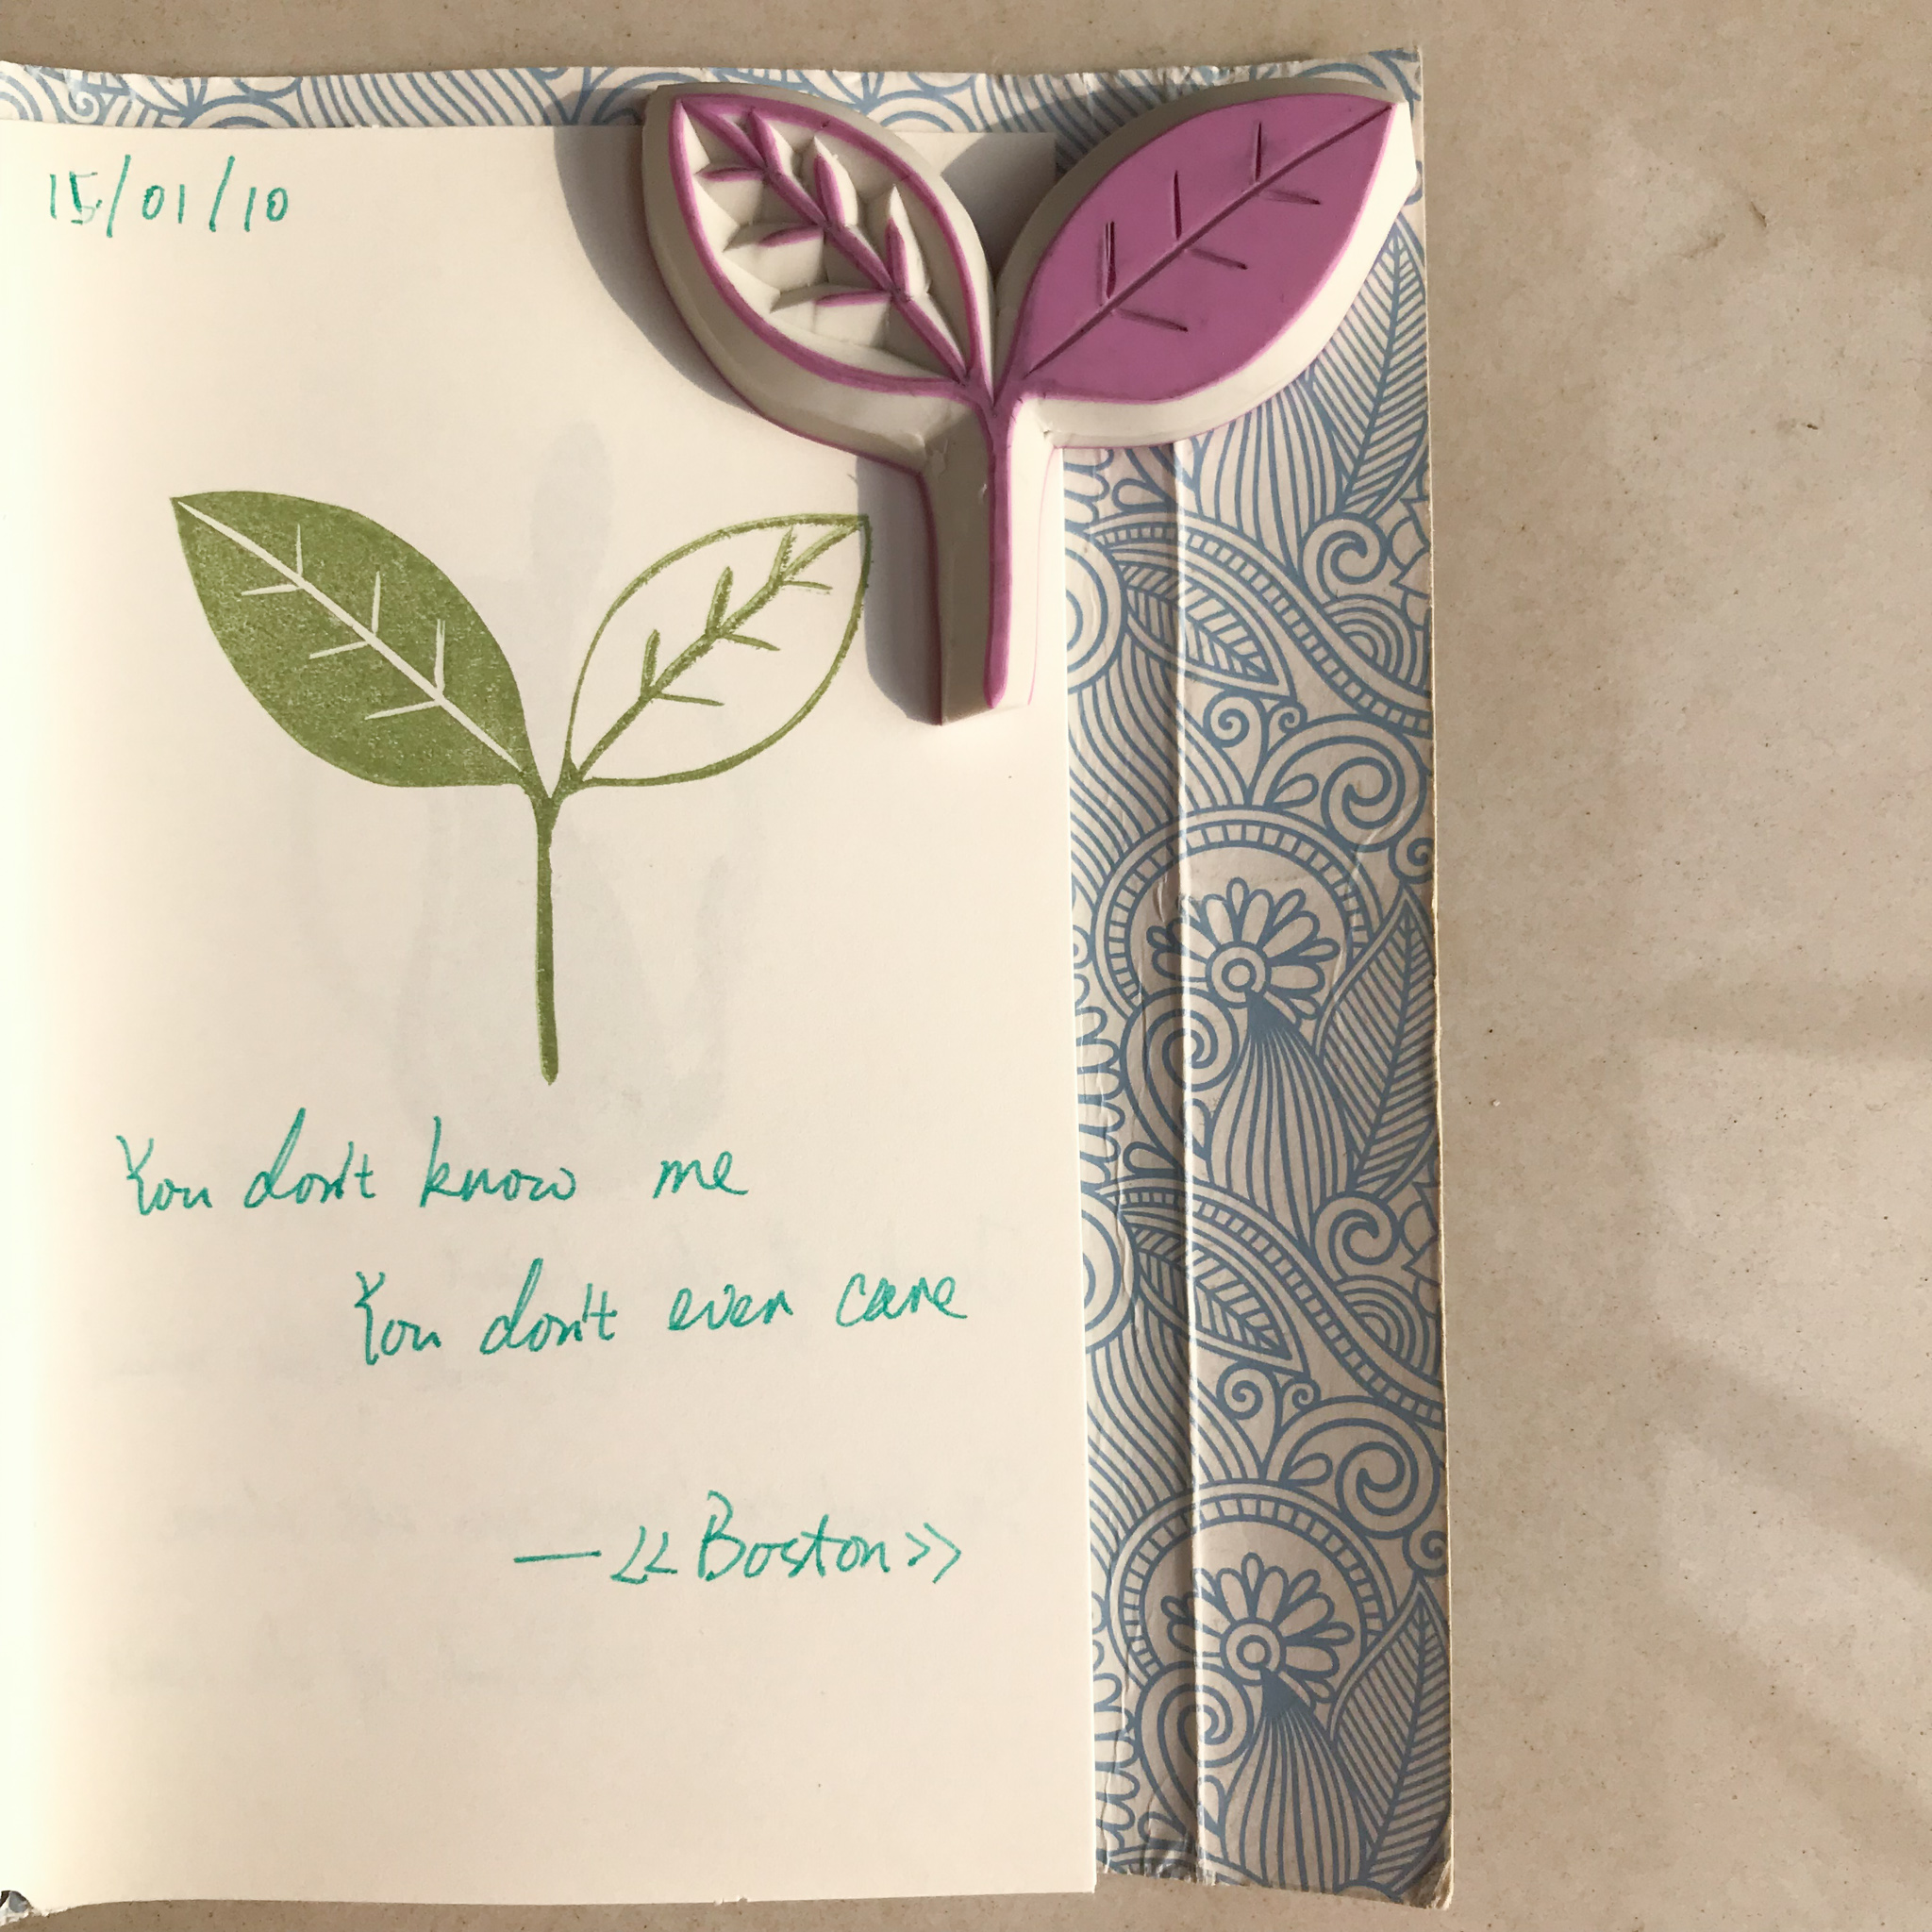 15/01/10
You don't know me
You don't even care
—<<Boston>>